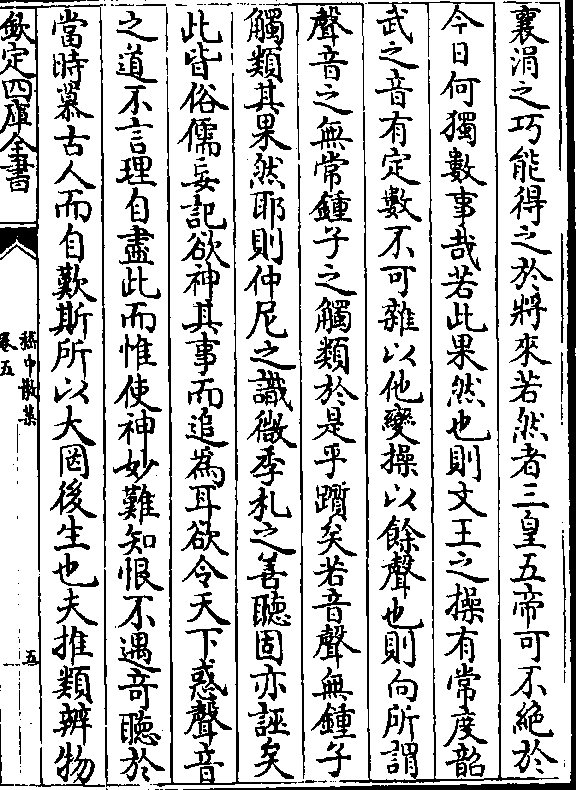 襄涓之巧能得之於將來若然者三皇五帝可不絶於
今日何獨數事哉若此果然也則文王之操有常度韶
武之音有定數不可雜以他變操以餘聲也則向所謂
聲音之無常鍾子之觸類於是乎躓矣若音聲無鍾子
觸類其果然耶則仲尼之識微季札之善聽固亦誣矣
此皆俗儒妄記欲神其事而追為耳欲令天下惑聲音
之道不言理自盡此而惟使神妙難知恨不遇奇聽於
當時慕古人而自歎斯所以大罔後生也夫推類辨物
欽定四庫全書
嵇中散集
卷五
五